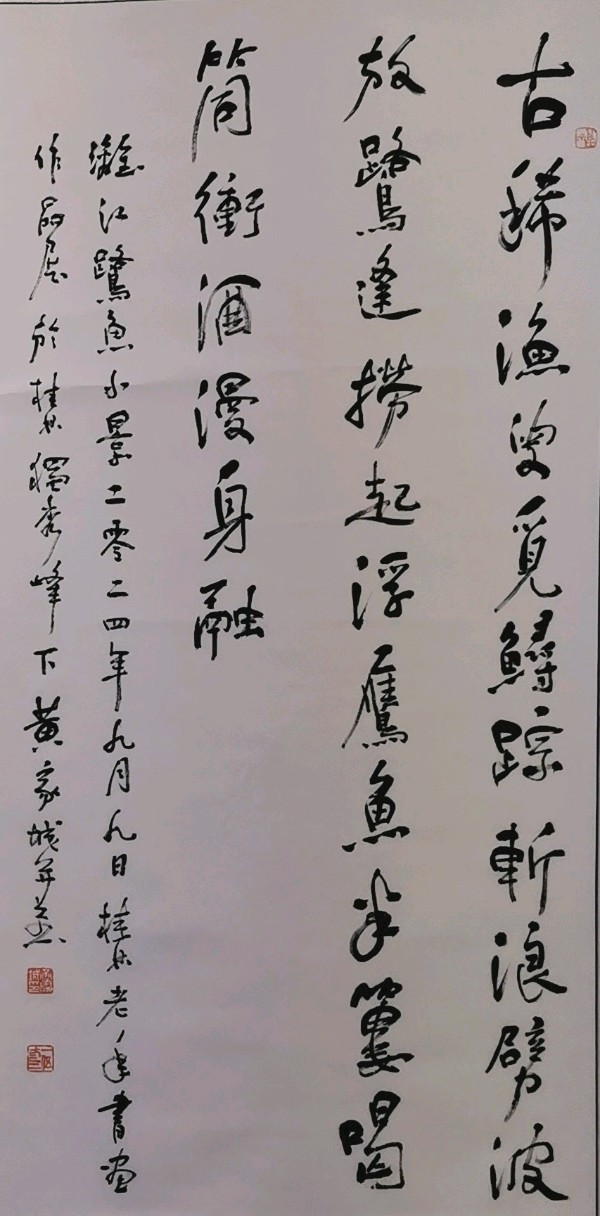 古稀渔叟覓鱘踪斬浪劈波
放鷺逢撈起浮鷹鱼半簍喝
筒衝酒漫身融
灕江鷺鱼小景二零二四年九月九日桂林老年書畫
作品展於桂林獨秀峰下黄家城并